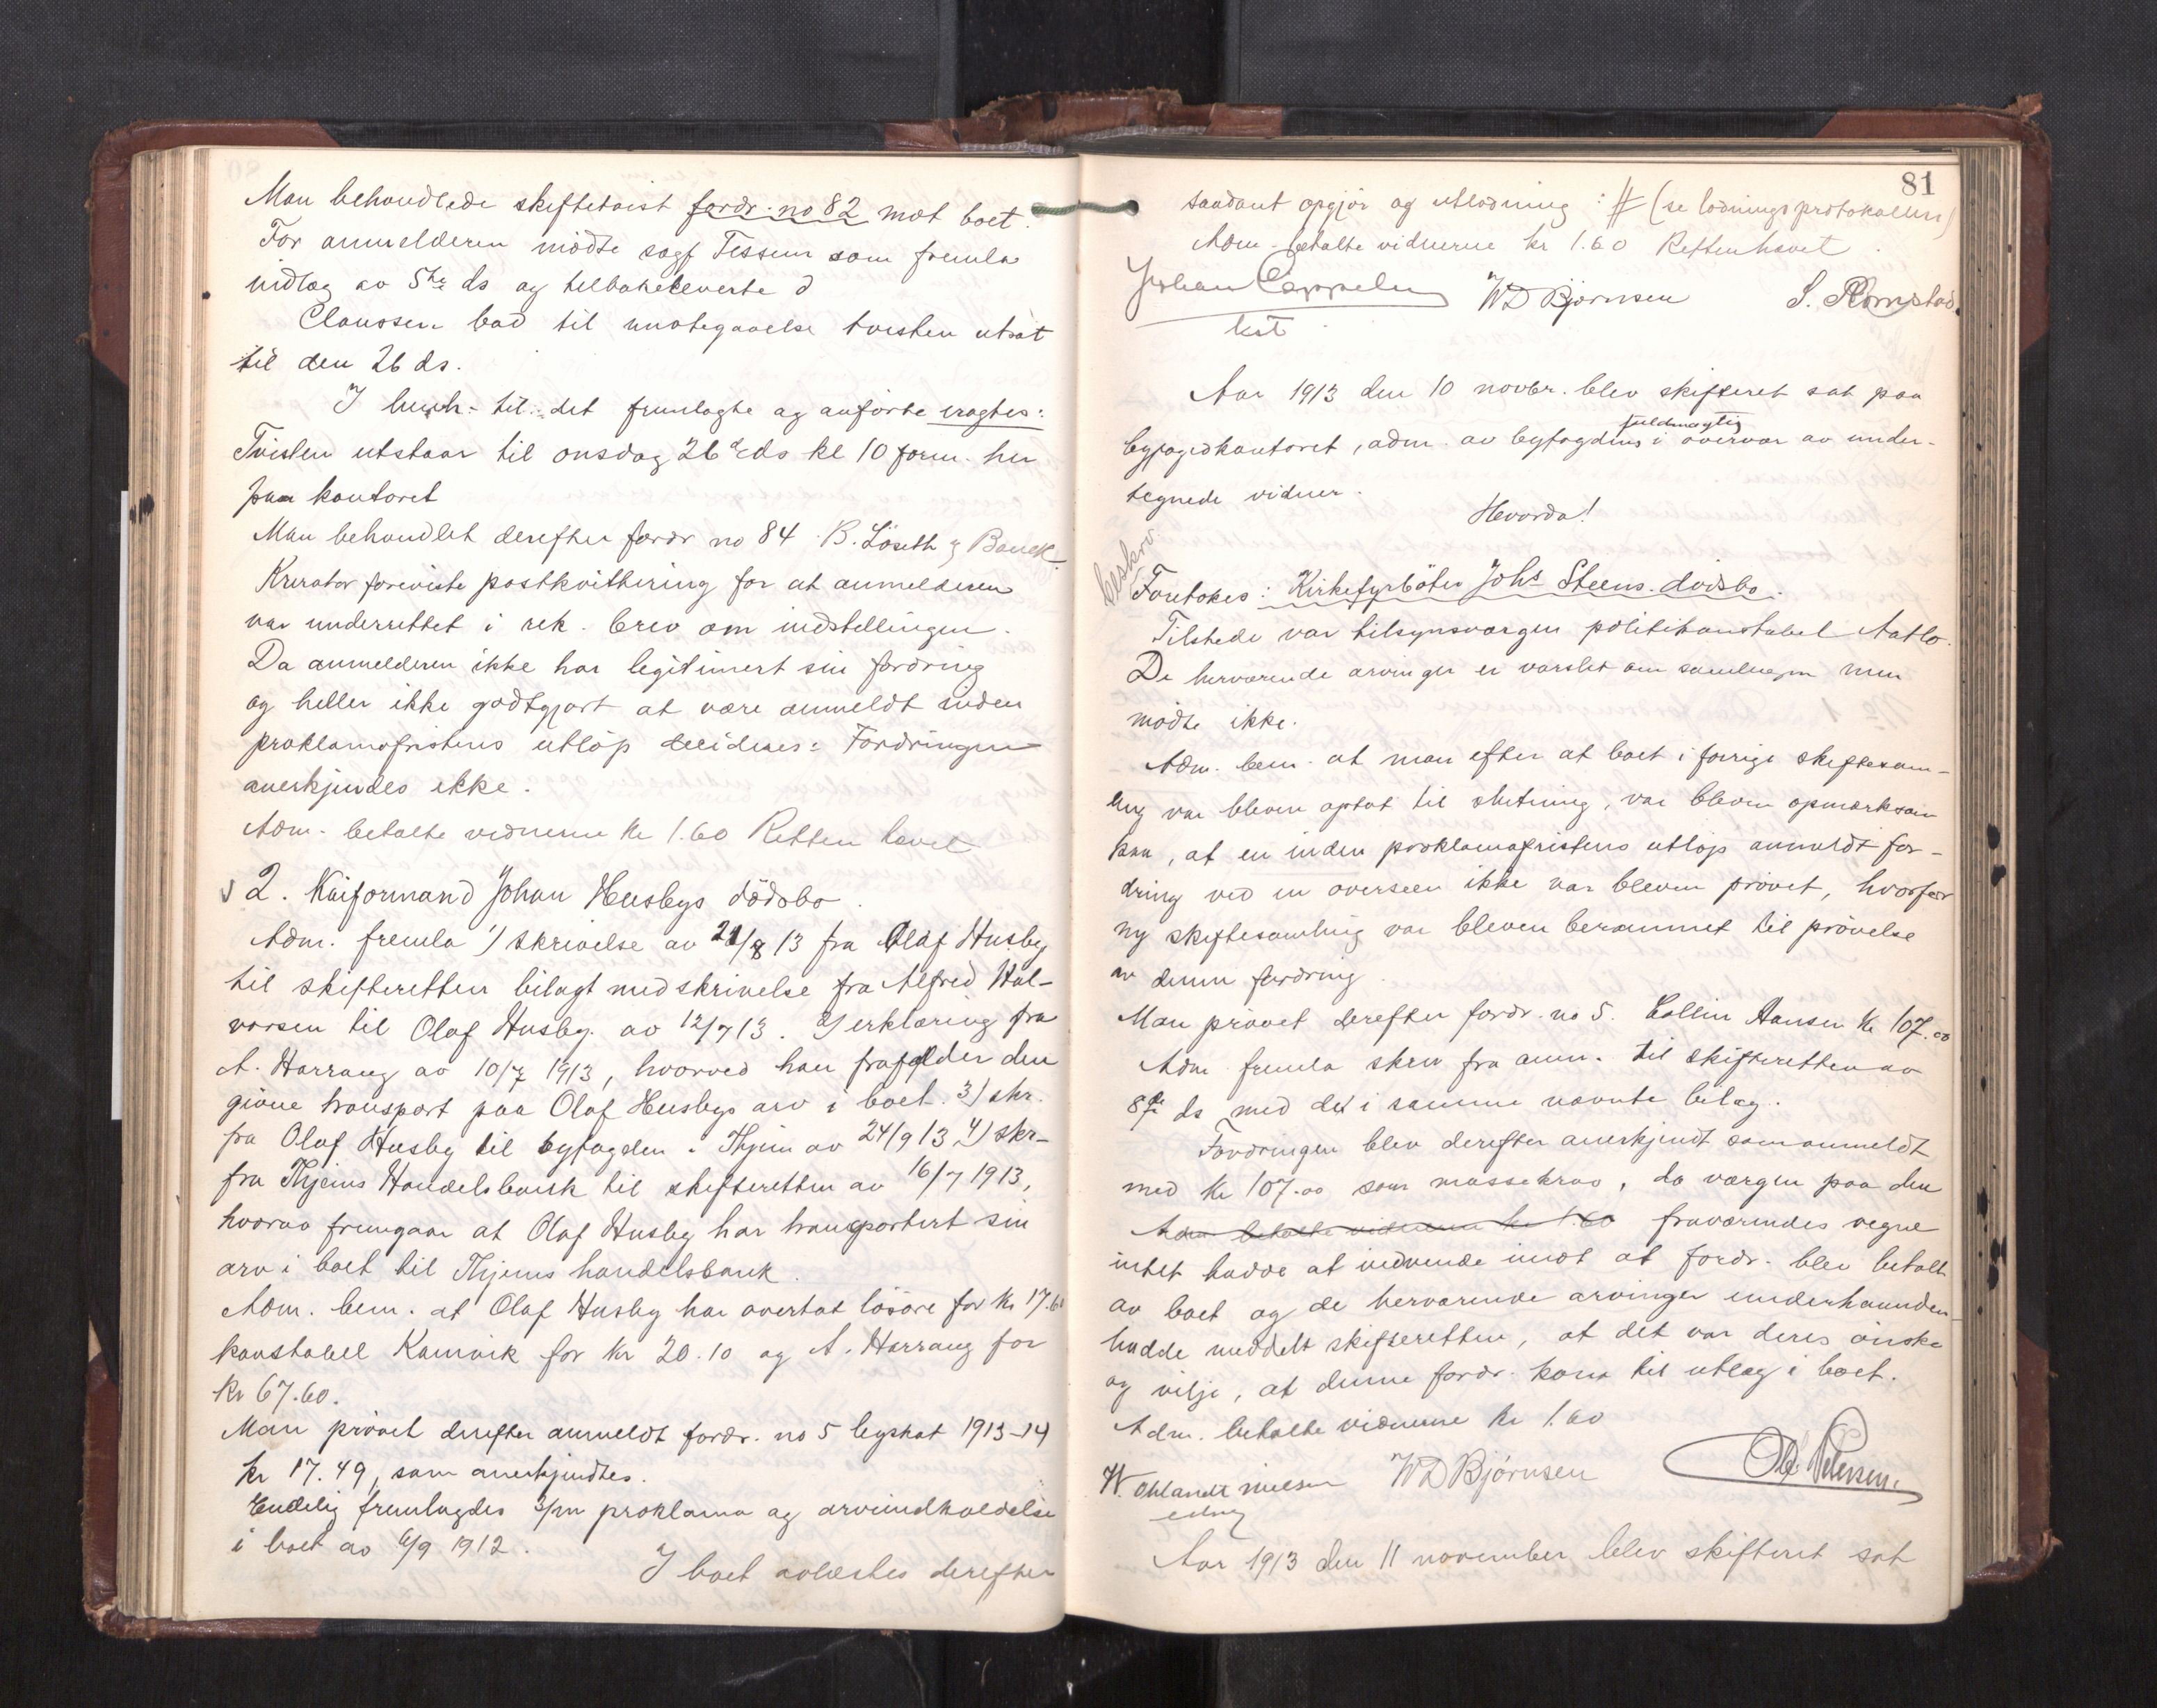 Man behandlede skiftetvist fordr. no 82 mot boet.
For anmelderen mødte sagf Tessem som fremla
indlæg av 5te ds og tilbakeleverte d
Claussen bad til imøtegaaelse tvisten utsat
til den 26 ds.
I henh. til det fremlagte og anførte eragtes:
Tvisten utstaar til onsdag 26de ds kl 10 form. her
paa kontoret
Man behandlet derefter fordr no 84 B. Løseth
Kurator foreviste postkvittering for at anmelderen
var underrettet i rek. brev om indstillingen.
Da anmelderen ikke har legitimert sin fordring
og heller ikke godtgjort at være anmeldt inden
proklamafristens utløp decideres: Fordringen
anerkjendes ikke.
Adm. betalte vidnerne kr 1.60 Retten hævet
2. Kaiformand Johan Husbys dödsbo.
Adm. fremla 1) skrivelse av 21/8 13 fra Olaf Husby
til skifteretten bilagt med skrivelse fra Alfred Hal-
vorsen til Olaf Husby av 12/7 13. 2) erklæring fra
A. Harrang av 10/7 1913, hvorved han frafalder den
givne transport paa Olaf Husbys arv i boet. 3) skr.
fra Olaf Husby til byfogden i Thjem av 24/9 13 4) skr-
fra Thjems Handelsbank til skifteretten av 16/7 1913,
hvorav fremgaar at Olaf Husby har transportert sin
arv i boet til Thjems handelsbank.
Adm. bem. at Olaf Husby har overtat løsøre for kr 17.60
konstabel Kamvik for kr 20.10 og A. Harrang for
kr 67.60.
Man prövet derefter anmeldt fordr. no 5 byskat 1913-14
kr 17.49, som anerkjendtes.
Endelig fremlagdes 3/m proklama og arveindkaldelse
i boet av 6/9 1912.
I boet avlæstes derefter
81
saadant opgjör og utlodning: # (se lodningsprotokollen)
Adm. betalte vidnerne kr 1.60 Retten hævet.
Johan Cappelen WD Bjørnsen S.
kst
Aar 1913 den 10 novbr. blev skifteret sat paa
fuldmægtig
byfogedkontoret, adm. av byfogdens i overvær av under-
tegnede vidner.
Hvorda!
beskrev
Foretokes: Kirkefyrböter Johs Steens. dödsbo.
Tilstede var tilsynsværgen politikonstabel Aatlo.
De herværende arvinger er varslet om samlingen men
mødte ikke.
Adm. bem. at man efter at boet i forrige skiftesam-
ling var bleven optat til slutning, var bleven opmærksom
paa, at en inden proklamafristens utløp anmeldt for-
dring ved en overseen ikke var bleven prøvet, hvorfor
ny skiftesamling var bleven berammet til prövelse
av denne fordring.
Man prövet derefter fordr. no 5. Collin Hansen kr 107.00
Adm fremla skriv fra anm. til skifteretten av
8de ds med det i samme nævnte bilag.
Fordringen blev derefter anerkjendt som anmeldt
med kr 107.00 som massekrav, da værgen paa den
Adm betalte vidnerne kr 1.60 fraværendes vegne
intet hadde at indvende imot at fordr. blev betalt
av boet og de herværende arvinger underhaanden
hadde meddelt skifteretten, at det var deres ønske
og vilje, at denne fordr. kom til utlæg i boet.
Adm. betalte vidnerne kr 1.60
W. Ohlandt Nielsen WD Bjørnsen Ole Petersen
edsv
Aar 1913 den 11 november blev skifteret sat